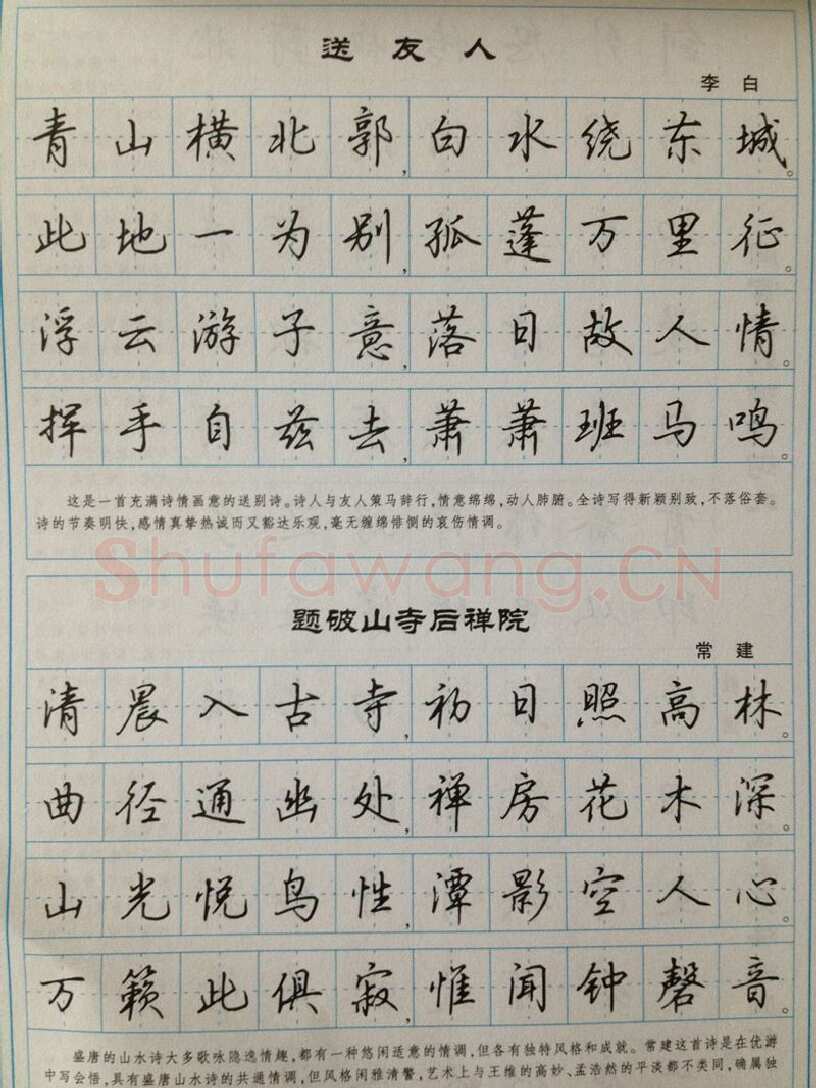 送友人
李白
青山横北郭,白水绕东城。
此地一为别,孤蓬万里征。
浮云游子意,落日故人情。
挥手自兹去,萧萧班马鸣。
这是一首充满诗情画意的送别诗。诗人与友人策马辞行,情意绵绵,动人肺腑。全诗写得新颖别致,不落俗套。
诗的节奏明快,感情真挚热诚而又豁达乐观,毫无缠绵悱恻的哀伤情调。
Shufawang.CN
题破山寺后禅院
常建
清晨入古寺,初日照高林。
曲径通幽处,禅房花木深。
山光悦鸟性,潭影空人心。
万籁此俱寂,惟闻钟磬音。
盛唐的山水诗大多歌咏隐逸情趣,都有一种悠闲适意的情调,但各有独特风格和成就。常建这首诗是在优游
中写会悟,具有盛唐山水诗的共通情调,但风格闲雅清警,艺术上与王维的高妙、孟浩然的平淡都不类同,确属独